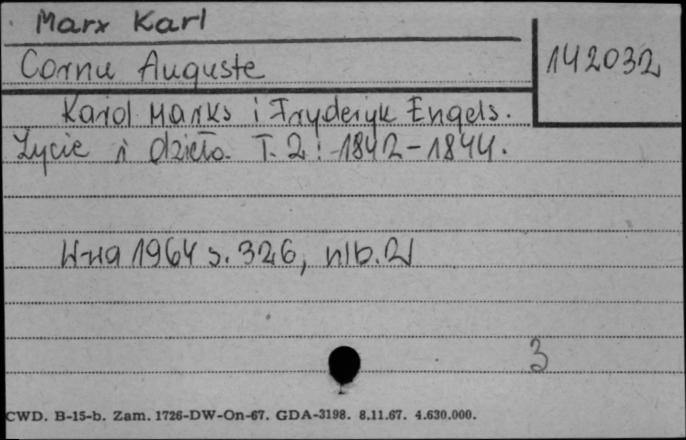 Marx Karl
Cornu Auguste
142032
Karol Marks i Fryderyk Engels.
Życie i dzieło. T. 2: 1842-1844.
W-wa 1964 s. 326, nlb. 2
3
CWD. B-15-b. Zam. 1726-DW-On-67. GDA-3198. 8.11.67. 4.630.000.